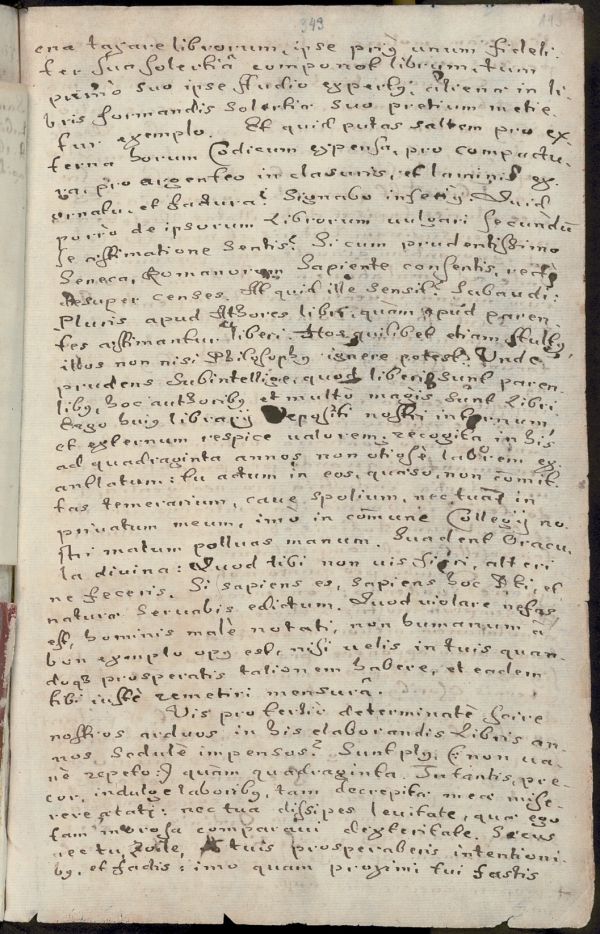 349
ena taxare librorum, ipse priꝰ unum fideli-
ter sua solertiâ componat librum, tum
primò suo ipse studio expertꝰ, aliena in li-
bris formandis solertia suo pretium metie-
tur exemplo. Et quid putas saltem pro ex-
terna horum Codicum expensa, pro compactu-
ra, pro argenteo in clausuris, et laminis ex-
ornatu, et factura? Signabo inferiꝰ. Quid
porrò de ipsorum Librorum uulgari secundũ
se æstimatione sentis? Si cum prudentissimo
Seneca, Romanorum Sapiente consentis, rectè
desuper censes. At quid ille sensit?
Pluris apud Athores libri, quàm apud paren-
tes æstimantur liberi. Hos quilibet etiam stultꝰ,
illos non nisi Philosophꝰ ignere potest. Unde
prudens subintellige, quod liberi sunt paren-
tibꝰ, hoc authoribꝰ et multo magis sunt Libri
Ergo huiꝰ librarij depositi nostri internum,
et externum respice ualorem, recogita in his
ad quadraginta annos non otiosè laborem ex-
antlatum: tu actum in eos, quæso, non cõmit-
tas temerarium, caue spolium, nec tuam in
priuatum meum, imò in cõmune Collegij no-
stri matum polluas manum. Suadent Oracu-
la diuina: Quod tibi non uis fieri, alteri
ne feceris. Si sapiens es, sapiens hoc et
naturæ seruabis edictum. Quod violare nefas
est, hominis malè notati, non humanum â
bon exemplo opꝰ est, nisi uelis in tuis quan-
doqꝫ prosperatis talionem habere, et eadem
tibi iustè remetiri mensurâ.
Vis pro tertio determinatè scire
nostros arduos in his elaborandis Libris an-
nos sedulè impensos? Sunt plꝰ (: non ua-
nè repeto :) quàm quadraginta. Tu tantis, pre-
cor, indulge laboribꝰ, tam decrepitæ meæ mise-
rere ætati: nec tua dissipes leuitate, quæ ego
tam morosa comparaui dexteritate. Secus
nec tu, Zoile, tuis prosperaberis intentioni-
bꝰ, et factis: imo quam proximi tui fastis